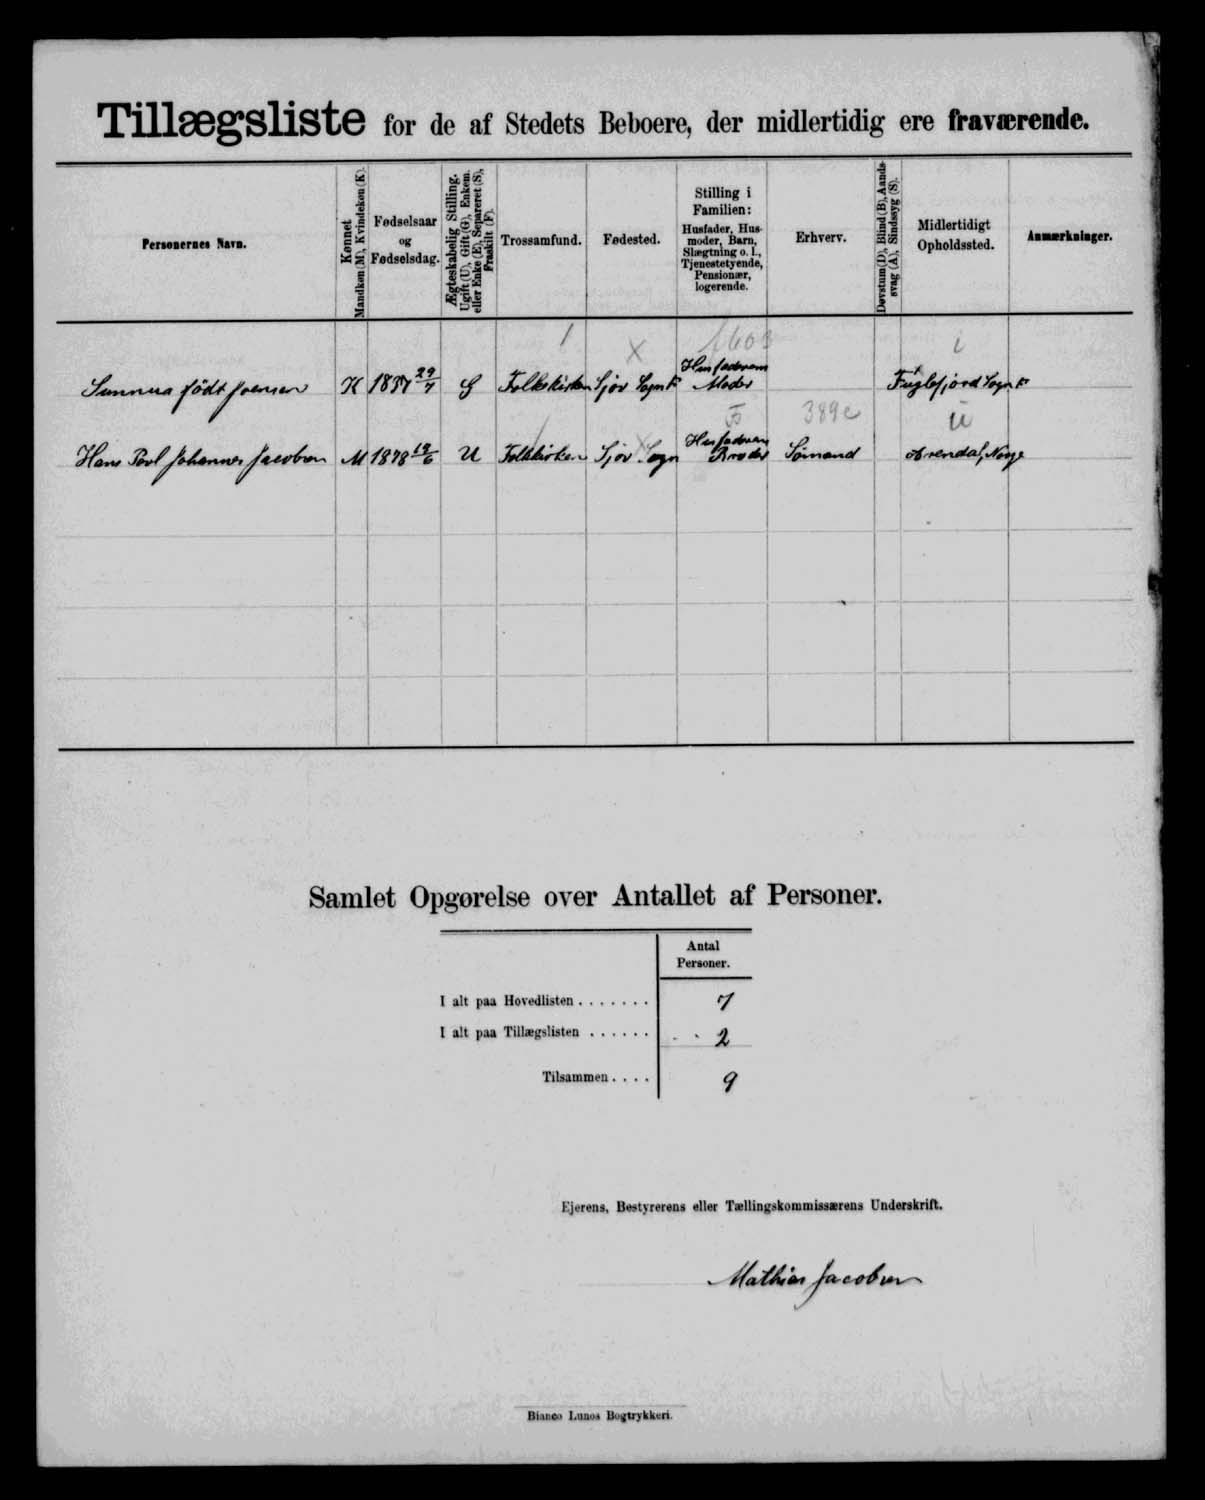 Tillægsliste for de af Stedets Beboere, der midlertidig ere fraværende.
Personernes Navn.
Kønnet
Mandkøn (M), Kvindekøn (K).
Fødselsaar
og
Fødselsdag.
Ægteskabelig Stilling.
Ugift (U), Gift (G), Enkem.
eller Enke (E), Separeret (S),
Fraskilt (F).
Trossamfund.
Fødested.
Stilling i
Familien:
Husfader, Hus-
moder, Barn,
Slægtning o. l.,
Tjenestetyende,
Pensionær,
logerende.
Erhverv.
Døvstum (D), Blind (B), Aands-
svag (A), Sindssyg (S).
Midlertidigt
Opholdssted.
Anmærkninger.
Sunnua født Joensen K 1837 29/7 G Folkekirken Sjov Sogn F. Husfaderens Moder Fuglefjord Sogn F.
389c
Hans Povl Johannes Jacobsen M 1878 19/6 U Folkekirken Sjov Sogn Husfaderens Broder Sømand Arendal, Norge
Samlet Opgørelse over Antallet af Personer.
Antal
Personer.
I alt paa Hovedlisten . . . . . . . 7
I alt paa Tillægslisten . . . . . . 2
Tilsammen . . . . 9
Ejerens, Bestyrerens eller Tællingskommissærens Underskrift.
Mathias Jacobsen
Bianco Lunos Bogtrykkeri.